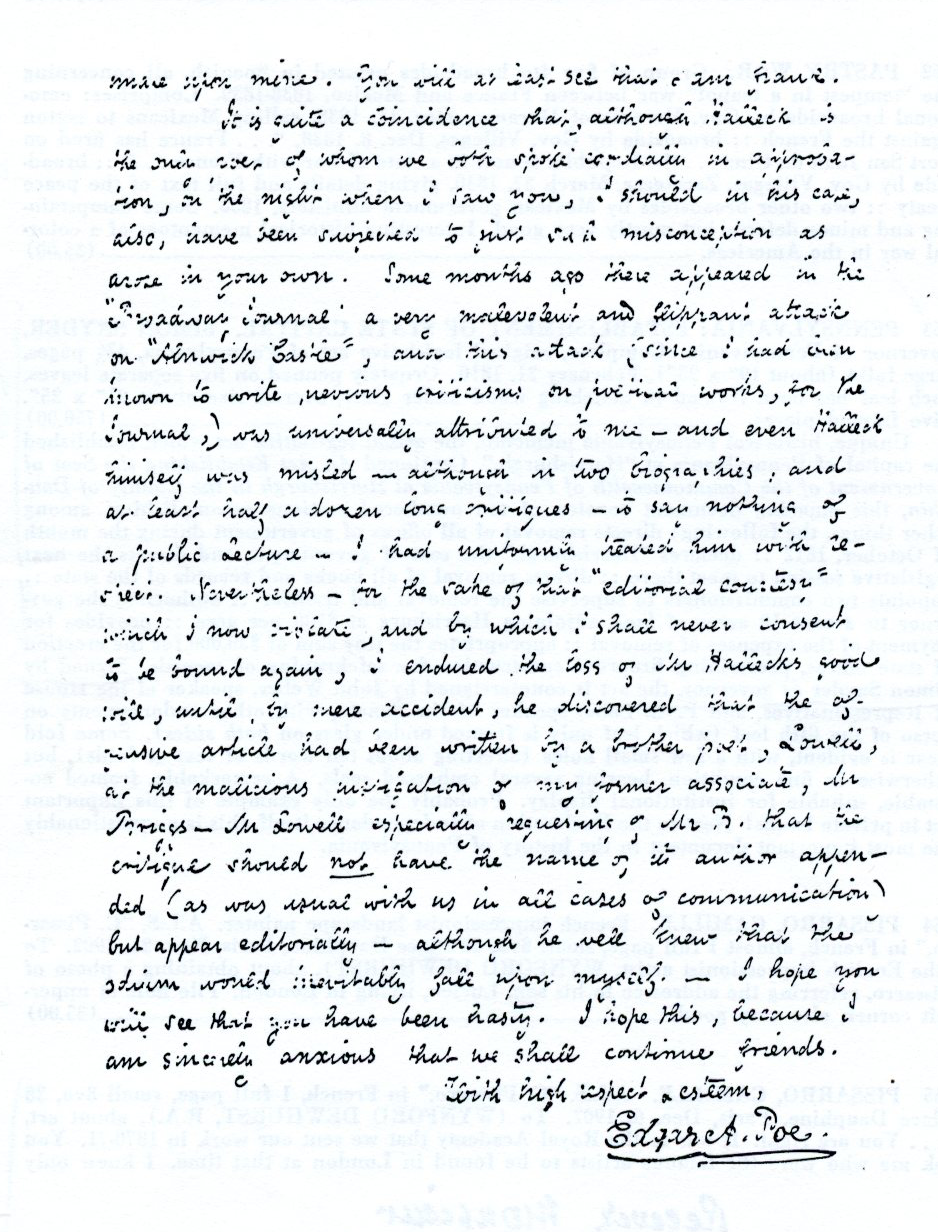 more upon mine. You will at least see that I am frank.
It is quite a coincidence that, although Halleck is
the only poet of whom we both spoke cordially in approba-
tion, on the night when I saw you, I should in his case,
also, have been subjected to just such misconception as
arose in your own. Some months ago there appeared in the
"Broadway Journal" a very malevolent and flippant attack
on "Alnwick Castle" and this attack (since I had been
known to write, previous criticisms, on poetical works, for the
Journal,) was universally attributed to me — and even Halleck
himself was misled — although in two biographies and
at least half a dozen long critiques — to say nothing of
a public lecture — I had uniformly treated him with re-
spect. Nevertheless — for the sake of that "editorial courtesy"
which I now violate, and by which I shall never consent
to be bound again, I endured the loss of Mr Halleck's good
will, until, by mere accident, he discovered that the of-
fensive article had been written by a brother poet, Lowell,
at the malicious instigation of my former associate, Mr
Briggs — Mr Lowell especially requesting of Mr B. that the
critique should not have the name of its author appen-
ded (as was usual with us in all cases of communication)
but appear editorially — although he well knew that the
odium would inevitably fall upon myself. I hope you
will see that you have been hasty. I hope this, because I
am sincerely anxious that we shall continue friends.
With high respect & esteem,
Edgar A. Poe